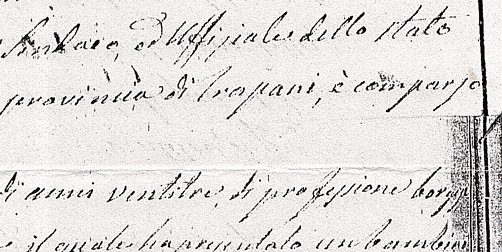 Sindaco, ed Uffiziale dello stato
provincia di Trapani, è comparso
di anni ventitre di professione borge
e il quale ha presentato un bambin